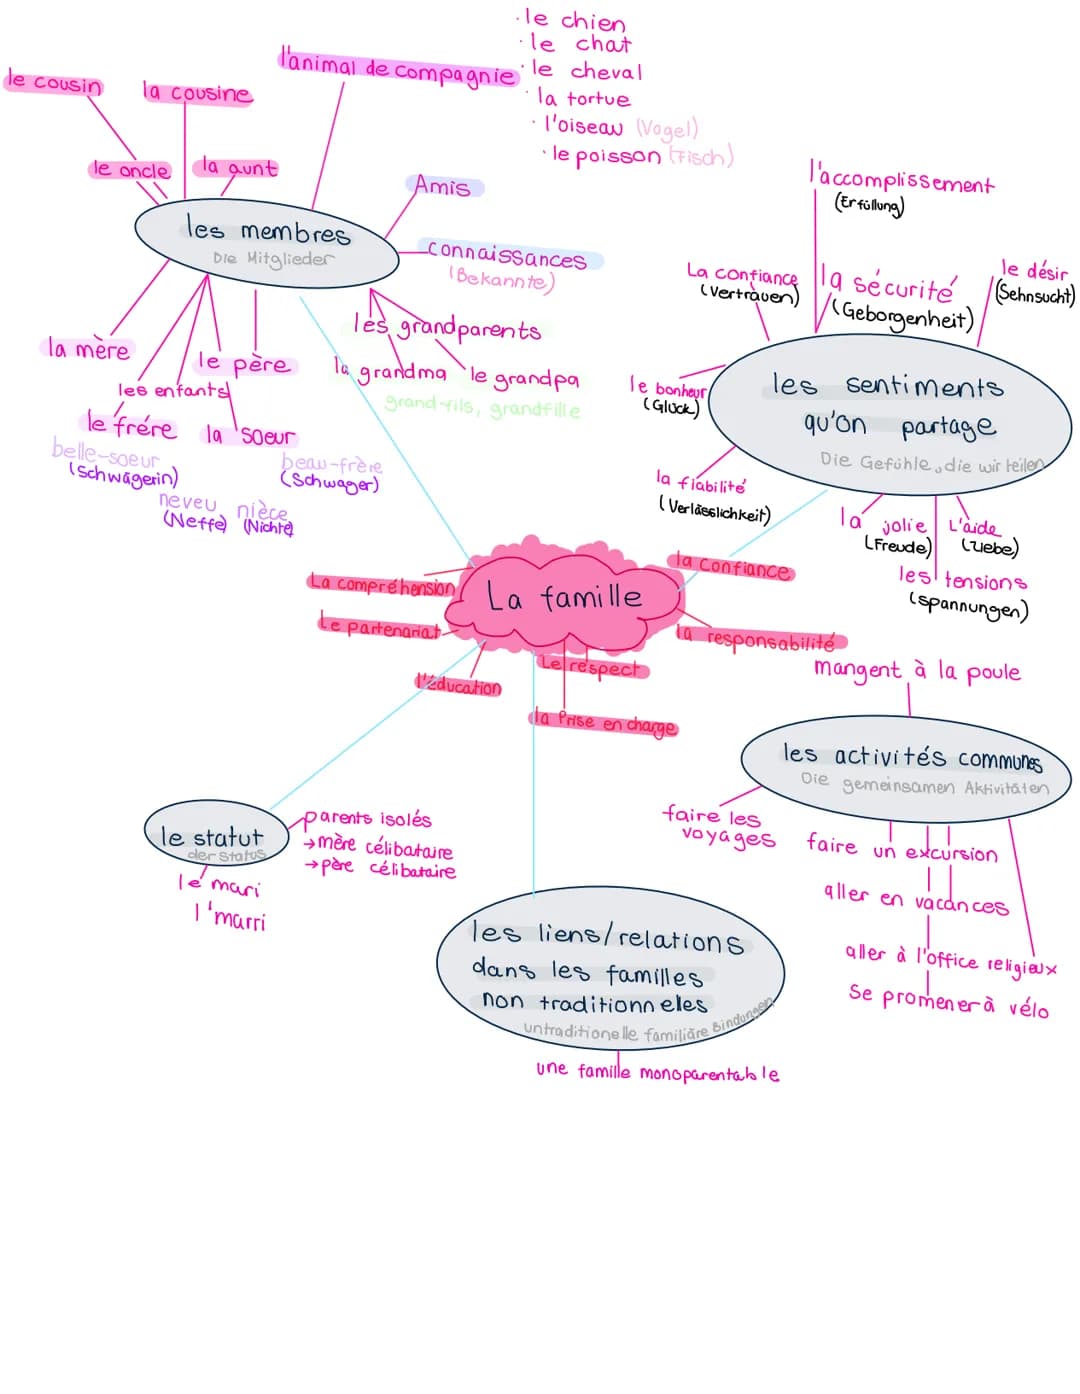 ·le chien
·le chat
·le cheval
·la tortue
·l'oiseau (Vogel)
·le poisson (Fisch)
l'animal de compagnie
le cousin
la cousine
le oncle
la aunt
Amis
les membres
Die Mitglieder
connaissances
(Bekannte)
les grandparents
la grandma
le grandpa
grand-fils, grandfille
la mère
le père
les enfants
le frére
la soeur
belle-soeur
(Schwägerin)
beau-frère
(Schwager)
neveu
(Neffe)
nièce
(Nichte)
l'accomplissement
(Erfüllung)
La confiance
(Vertrauen)
la sécurité
(Geborgenheit)
le désir
(Sehnsucht)
les sentiments
qu'on partage
Die Gefühle, die wir teilen
le bonheur
(Glück)
la fiabilité
(Verlässlichkeit)
la jolie
(Freude)
L'aide
(Liebe)
les tensions
(spannungen)
La famille
La compréhension
Le partenariat
l'éducation
la confiance
la responsabilité
Le respect
la Prise en charge
mangent à la poule
les activités communes
Die gemeinsamen Aktivitäten
faire les
voyages
faire un excursion
aller en vacances
aller à l'office religieux
Se promener à vélo
le statut
der Status
parents isolés
→mère célibataire
→père célibataire
le mari
l'marri
les liens/relations
dans les familles
non traditionnelles
untraditionelle familiäre Bindungen
une famille monoparentable